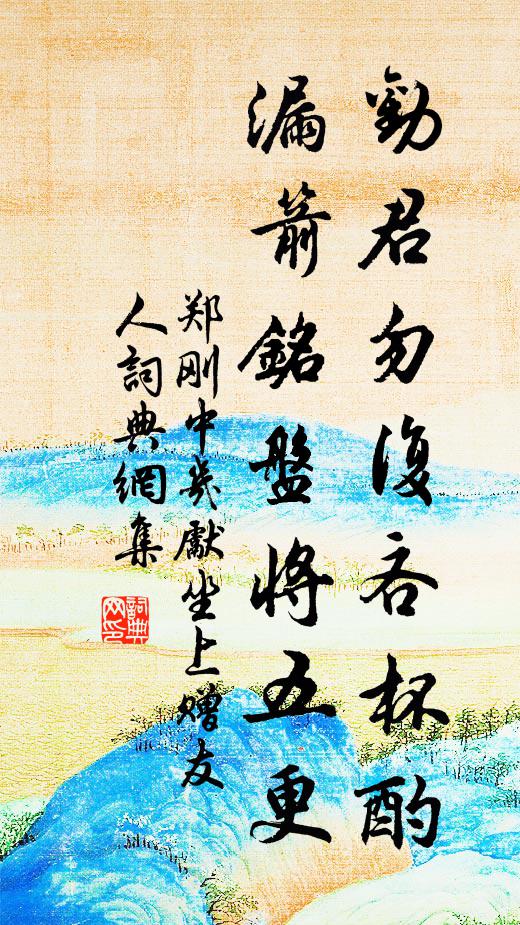 勸君勿復吝杯酌
漏箭銘盤將五更
郑刚中義獻坐上赠友
人詞典網集
詞典
网印